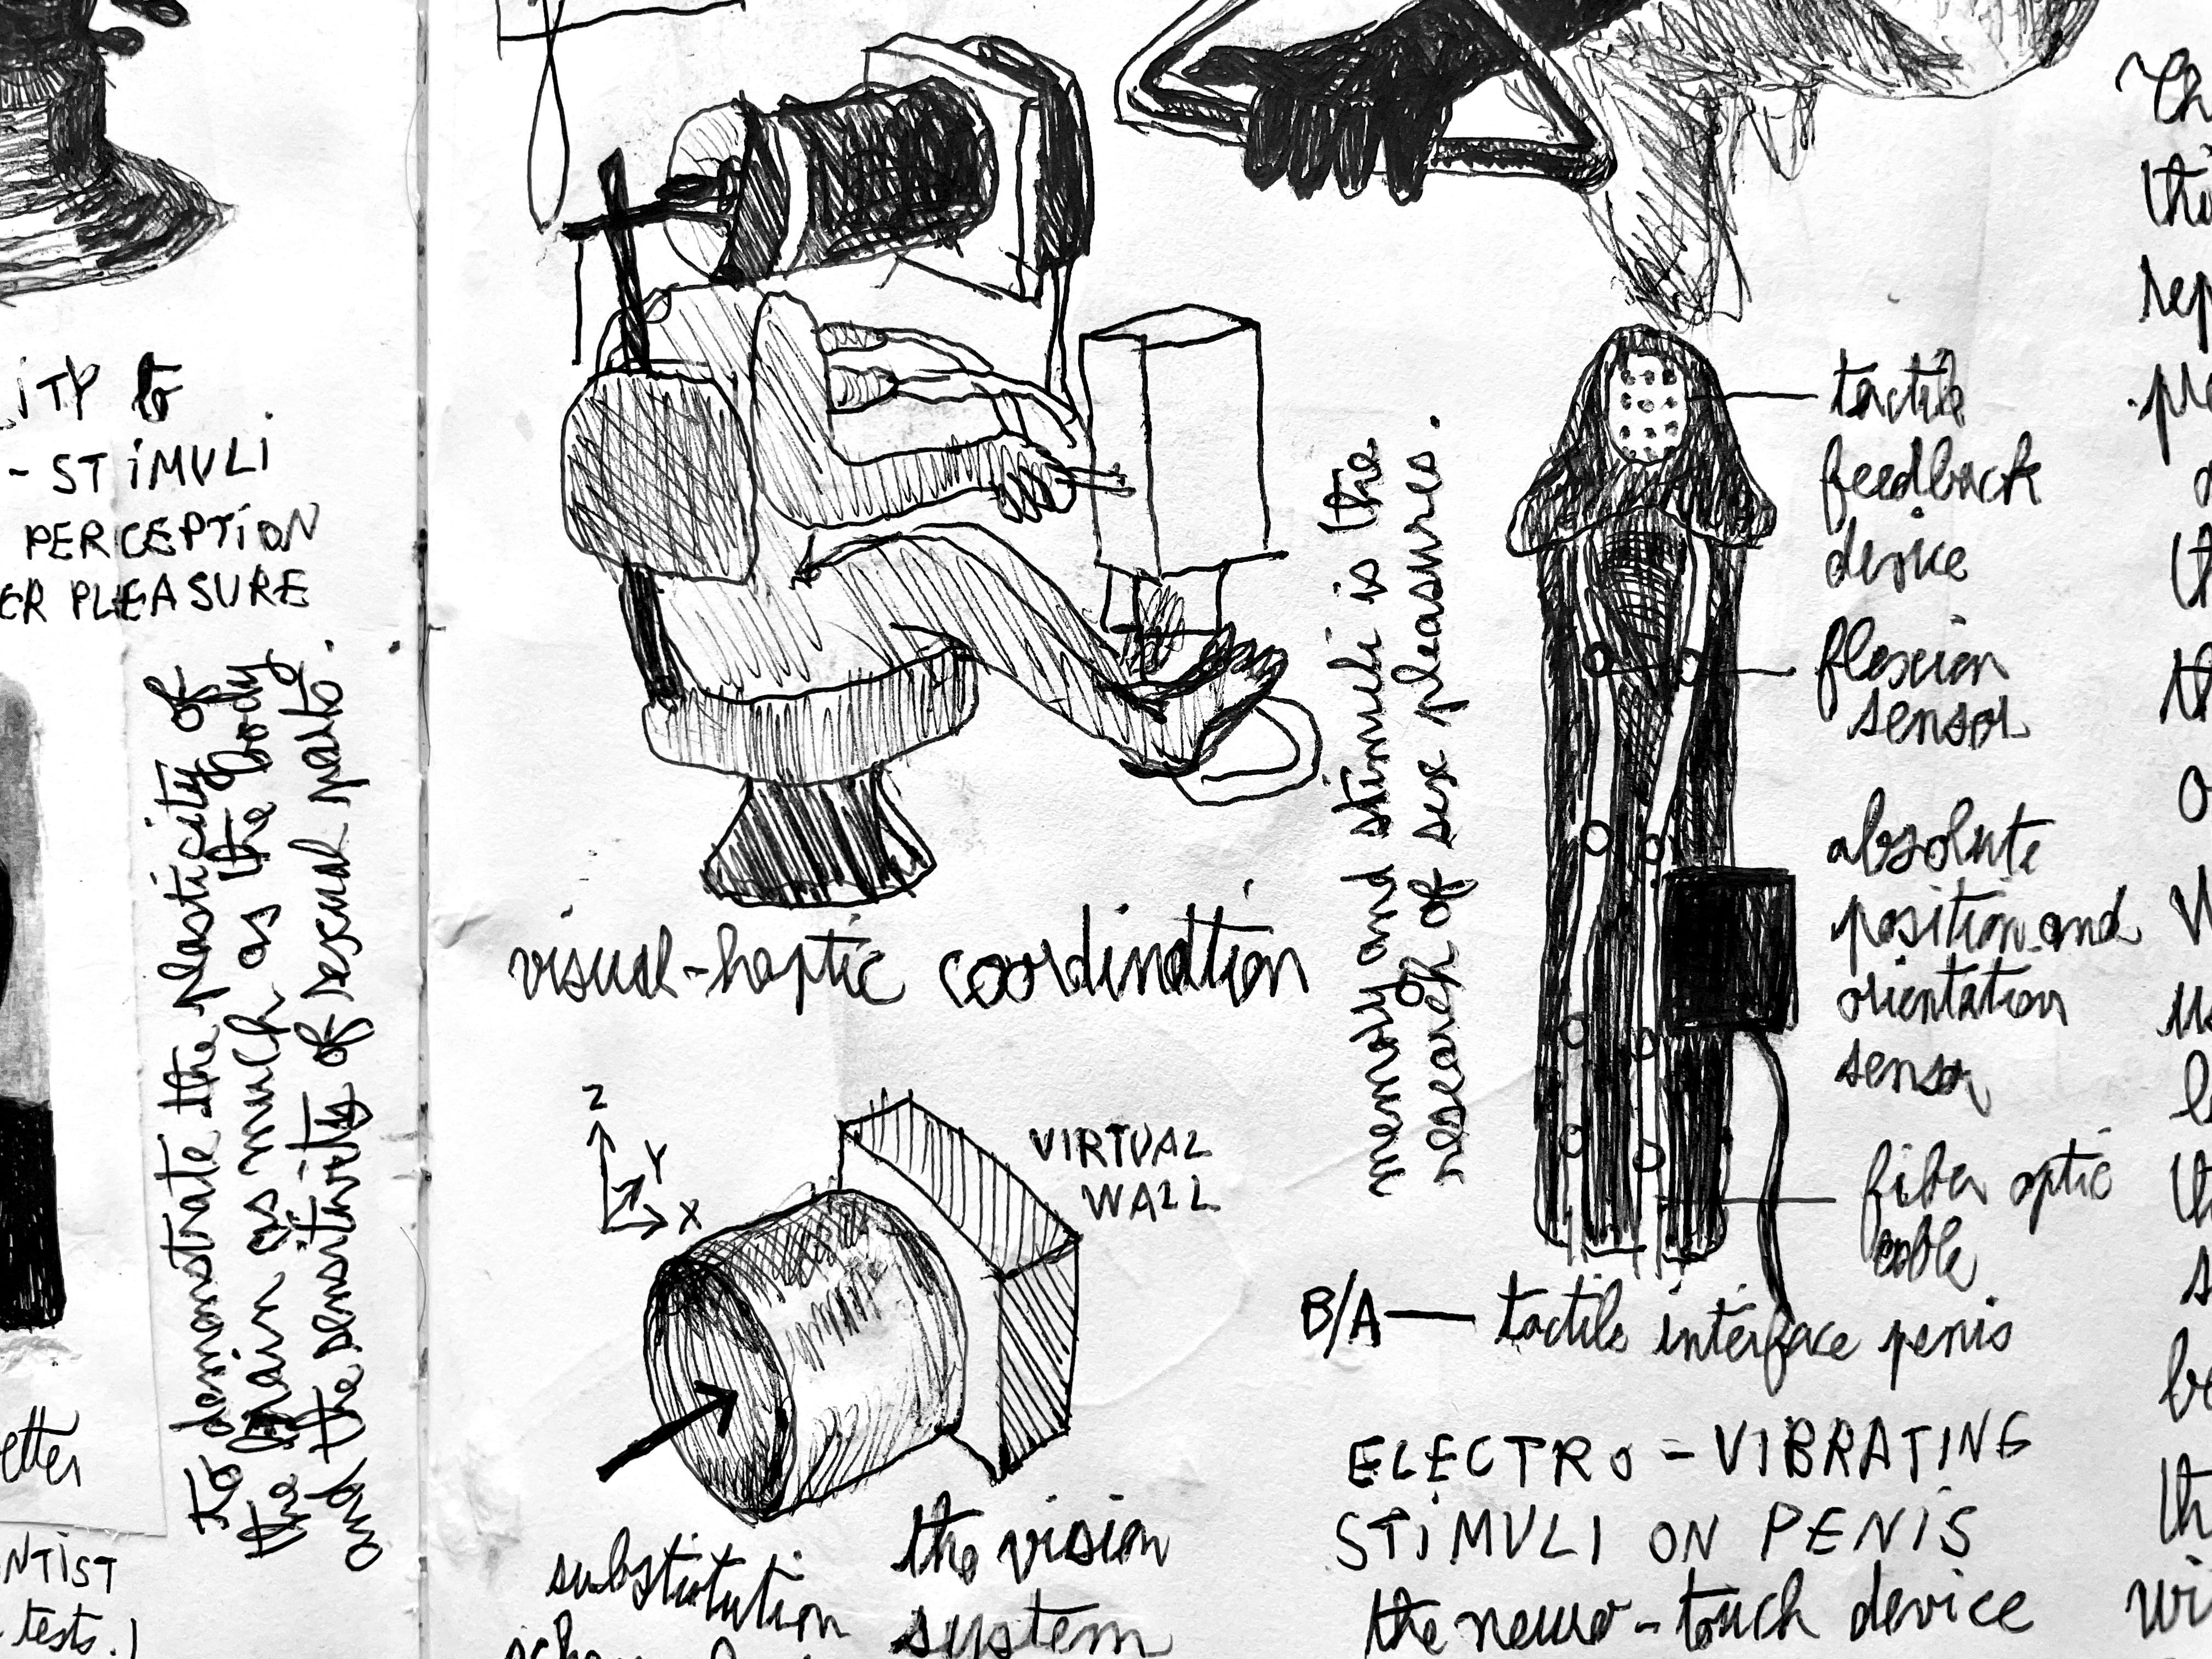 ITY to
- STIMULI
PERCEPTION
ER PLEASURE
to demonstrate the plasticity of
the brain as much as the body
and the sensitivity of sexual parts.
etter
NTIST
tests.)
visual-haptic coordination
Z
Y
X
VIRTUAL
WALL
substitution
the vision
system
memory and stimuli is the
research of sex pleasures.
tactile
feedback
device
flexion
sensor
absolute
position and
orientation
sensor
fiber optic
cable
B/A — tactile interface penis
ELECTRO - VIBRATING
STIMULI ON PENIS
the neuro-touch device
Th
thi
rep